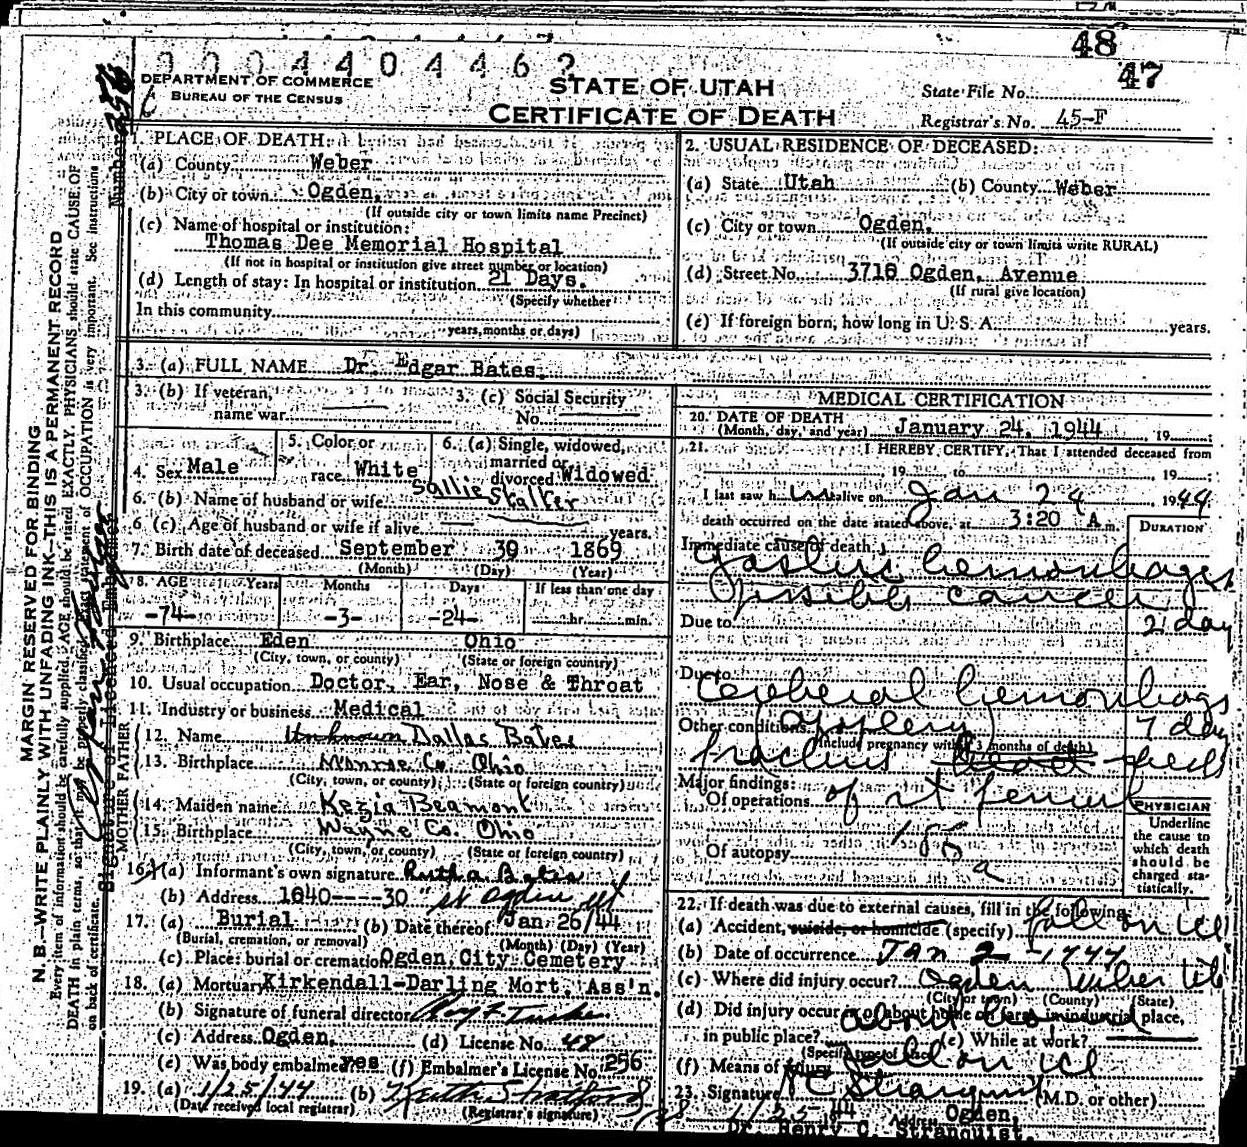 48
47
0 0 0 4 4 0 4 4 6 2
DEPARTMENT OF COMMERCE
BUREAU OF THE CENSUS
STATE OF UTAH
CERTIFICATE OF DEATH
State File No.
Registrar's No. 45-F
1. PLACE OF DEATH:
(a) County Weber
(b) City or town Ogden,
(If outside city or town limits name Precinct)
(c) Name of hospital or institution:
Thomas Dee Memorial Hospital
(If not in hospital or institution give street number or location)
(d) Length of stay: In hospital or institution 21 Days.
(Specify whether
In this community
years, months or days)
2. USUAL RESIDENCE OF DECEASED:
(a) State Utah (b) County Weber
(c) City or town Ogden,
(If outside city or town limits write RURAL)
(d) Street No. 3716 Ogden, Avenue
(If rural give location)
(e) If foreign born, how long in U. S. A. years.
3. (a) FULL NAME Dr. Edgar Bates.
3. (b) If veteran, name war
3. (c) Social Security No.
4. Sex Male
5. Color or race White
6. (a) Single, widowed, married or divorced Widowed
6. (b) Name of husband or wife Sallie Stalker
6 (c) Age of husband or wife if alive years.
7. Birth date of deceased September 30 1869
(Month) (Day) (Year)
8. AGE Years Months Days If less than one day
-74- -3- -24- hr. min.
9. Birthplace Eden Ohio
(City, town, or county) (State or foreign country)
10. Usual occupation Doctor, Ear, Nose & Throat
11. Industry or business Medical
FATHER
12. Name Unknown Dallas Bates
13. Birthplace Monroe Co. Ohio
(City, town, or county) (State or foreign country)
MOTHER
14. Maiden name Kezia Beamont
15. Birthplace Wayne Co. Ohio
(City, town, or county) (State or foreign country)
16. (a) Informant's own signature Ruth a Bates
(b) Address 1640----30 " st Ogden ut
17. (a) Burial (b) Date thereof Jan 26/44
(Burial, cremation, or removal) (Month) (Day) (Year)
(c) Place: burial or cremation Ogden, City Cemetery
18. (a) Mortuary Kirkendall-Darling Mort. Ass'n.
(b) Signature of funeral director
(c) Address Ogden. (d) License No. 48
(e) Was body embalmed? yes (f) Embalmer's License No. 256
19. (a) 1/25/44 (b) Keith Stratford
(Date received local registrar) (Registrar's signature)
MEDICAL CERTIFICATION
20. DATE OF DEATH
(Month, day, and year) January 24, 1944, 19
21. I HEREBY CERTIFY, That I attended deceased from
, 19 to , 19 :
I last saw h im alive on Jan 24 1944
death occurred on the date stated above, at 3:20 A m.
DURATION
Immediate cause of death
gastric hemorrhages
possible cancer
Due to 21 day
Due to
Cerebral hemorrhage
Other conditions apoplexy) 7 day
(include pregnancy within 3 months of death)
fracture head neck
Major findings:
Of operations of rt femur
186
a
Of autopsy
PHYSICIAN
Underline
the cause to
which death
should be
charged sta-
tistically.
22. If death was due to external causes, fill in the following:
(a) Accident, suicide, or homicide (specify) fall on ice
(b) Date of occurrence Jan 2 - 1944
(c) Where did injury occur? Ogden Weber Ut
(City or town) (County) (State)
(d) Did injury occur in or about home on farm in industrial place,
about home
in public place? (e) While at work?
(Specify type of place)
(f) Means of injury fall on ice
23. Signature H C Stranquist (M.D. or other)
1/25-44 Address Ogden.
Dr. Henry C. Stranquist.
MARGIN RESERVED FOR BINDING
N. B.—WRITE PLAINLY WITH UNFADING INK—THIS IS A PERMANENT RECORD
Every item of information should be carefully supplied. AGE should be stated EXACTLY. PHYSICIANS should state CAUSE OF
DEATH in plain terms, so that it may be properly classified. Exact statement of OCCUPATION is very important. See instructions
on back of certificate.
Signature of Licensed Embalmer
Number 256